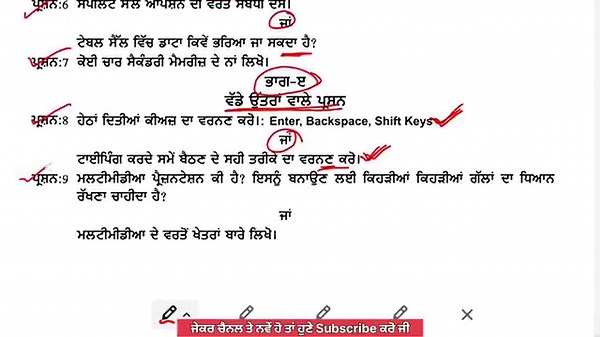 ਪ੍ਰਸ਼ਨ:6 ਸਪਲਿਟ ਸੈੱਲ ਆਪਸ਼ਨ ਦੀ ਵਰਤੋਂ ਸਬੰਧੀ ਦੱਸੋ।
ਜਾਂ
ਟੇਬਲ ਸੈੱਲ ਵਿੱਚ ਡਾਟਾ ਕਿਵੇਂ ਭਰਿਆ ਜਾ ਸਕਦਾ ਹੈ?
ਪ੍ਰਸ਼ਨ:7 ਕੋਈ ਚਾਰ ਸੈਕੰਡਰੀ ਮੈਮਰੀਜ਼ ਦੇ ਨਾਂ ਲਿਖੋ।
ਭਾਗ-ੲ
ਵੱਡੇ ਉੱਤਰਾਂ ਵਾਲੇ ਪ੍ਰਸ਼ਨ
ਪ੍ਰਸ਼ਨ:8 ਹੇਠਾਂ ਦਿਤੀਆਂ ਕੀਅਜ਼ ਦਾ ਵਰਨਣ ਕਰੋ।: Enter, Backspace, Shift Keys
ਜਾਂ
ਟਾਈਪਿੰਗ ਕਰਦੇ ਸਮੇਂ ਬੈਠਣ ਦੇ ਸਹੀ ਤਰੀਕੇ ਦਾ ਵਰਨਣ ਕਰੋ।
ਪ੍ਰਸ਼ਨ:9 ਮਲਟੀਮੀਡੀਆ ਪ੍ਰੈਜ਼ਨਟੇਸ਼ਨ ਕੀ ਹੈ? ਇਸਨੂੰ ਬਨਾਉਣ ਲਈ ਕਿਹੜੀਆਂ ਕਿਹੜੀਆਂ ਗੱਲਾਂ ਦਾ ਧਿਆਨ
ਰੱਖਣਾ ਚਾਹੀਦਾ ਹੈ?
ਜਾਂ
ਮਲਟੀਮੀਡੀਆ ਦੇ ਵਰਤੋਂ ਖੇਤਰਾਂ ਬਾਰੇ ਲਿਖੋ।
ਜੇਕਰ ਚੈਨਲ ਤੇ ਨਵੇਂ ਹੋ ਤਾਂ ਹੁਣੇ Subscribe ਕਰੋ ਜੀ